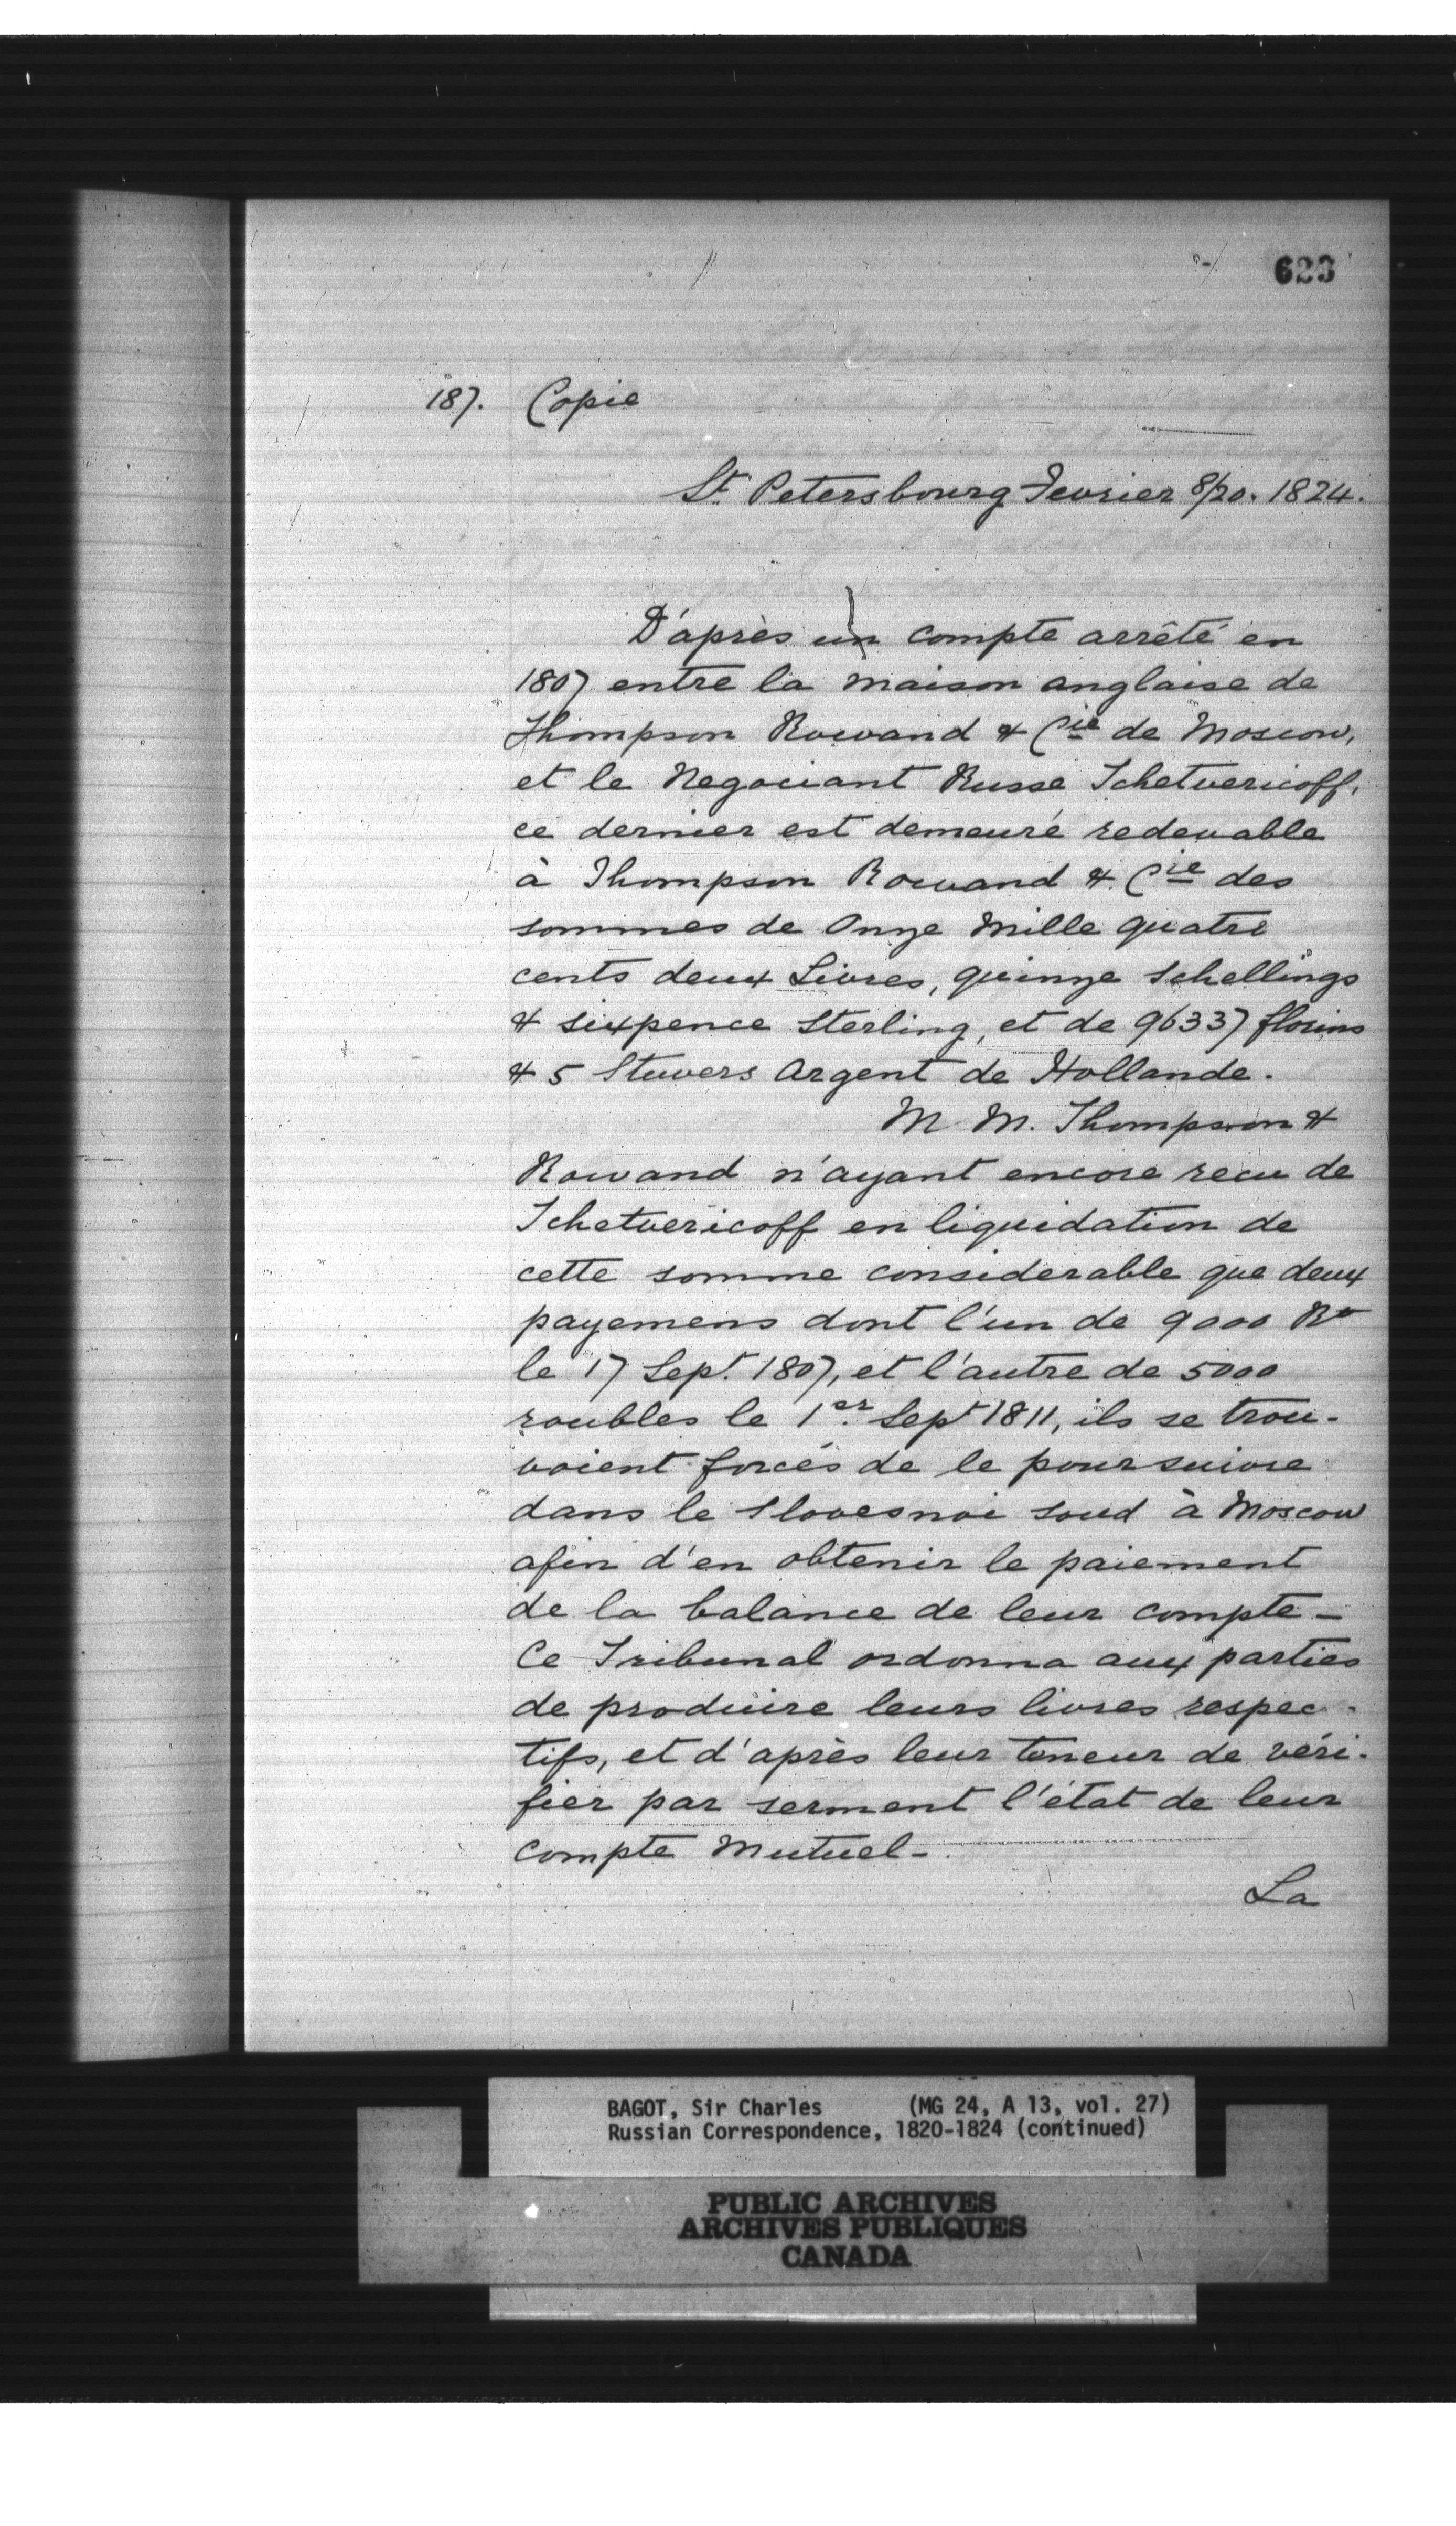 623
187. Copie
St. Petersbourg Fevrier 8/20. 1824.
D'après un compte arrêté en
1807 entre la maison anglaise de
Thompson Rowand & Cie de Moscow,
et le Negociant Russe Tchetvericoff,
ce dernier est demeuré redevable
à Thompson Rowand & Cie des
sommes de Onze Mille quatre
cents deux Livres, quinze Schellings
& sixpence Sterling, et de 96337 florins
& 5 Stuvers Argent de Hollande.
M. M. Thompson &
Rowand n'ayant encore recu de
Tchetvericoff en liquidation de
cette somme considerable que deux
payemens dont l'un de 9000 Ro
le 17 Sept. 1807, et l'autre de 5000
roubles le 1er. Sept 1811, ils se trou-
voient forcés de le poursuivre
dans le Slovesnoi Soud à Moscow
afin d'en obtenir le paiement
de la balance de leur compte -
Ce Tribunal ordonna aux parties
de produire leurs livres respec-
tifs, et d'après leur teneur de véri-
fier par serment l'état de leur
compte Mutuel -
La
BAGOT, Sir Charles (MG 24, A 13, vol. 27)
Russian Correspondence, 1820-1824 (continued)
PUBLIC ARCHIVES
ARCHIVES PUBLIQUES
CANADA